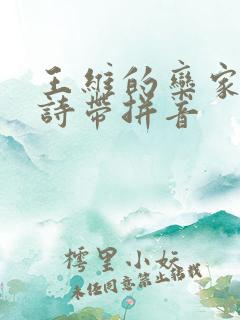 王維的欒家
詩帶拼音
樗里小妖
未任同意禁止轉載